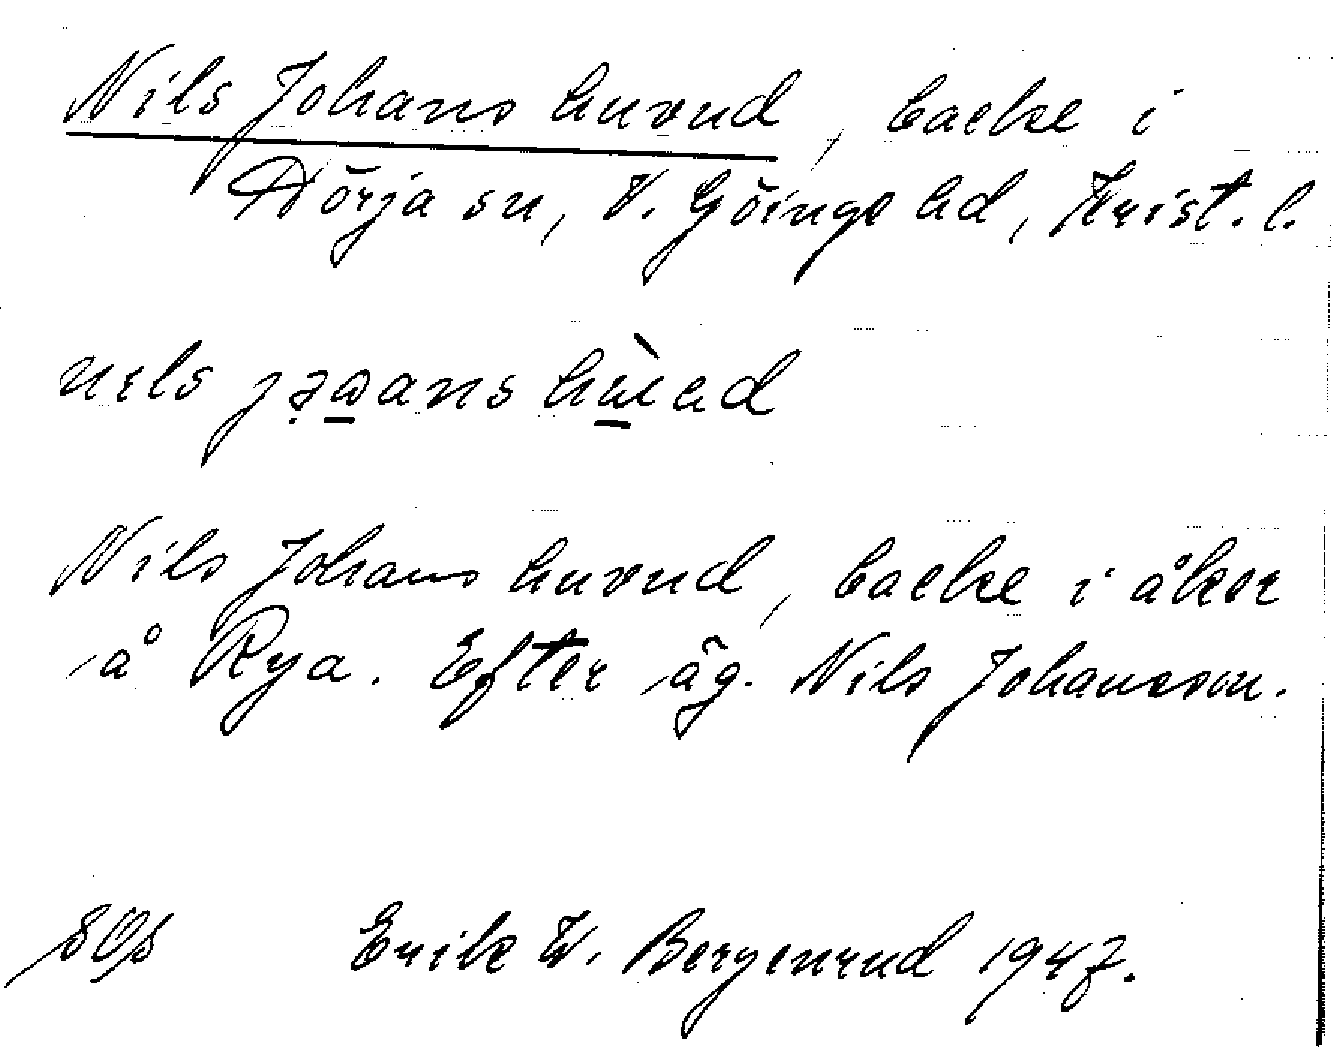 Nils Johans huvud, backe i
Dörja sn, V. Göinge hd, Krist. l.
nels
Nils Johans huvud, backe i åker
å Rya. Efter äg. Nils Johansson.
Erik W. Bergenrud 1947.